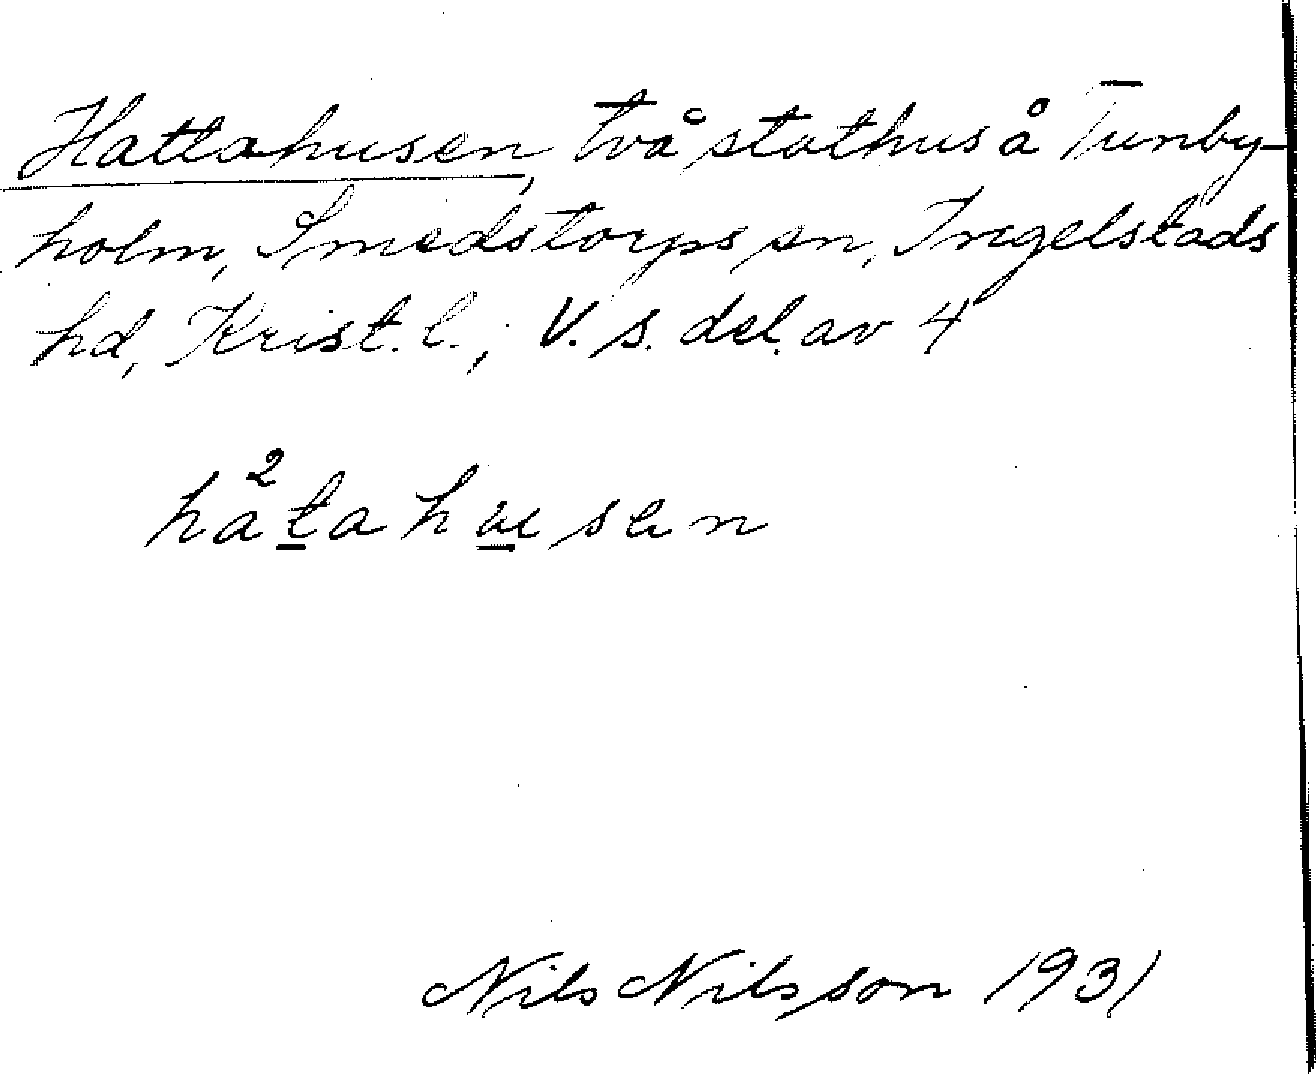 Hattahusen, två stathus å Tunby-
holm, Smedstorps sn, Ingelstads
hd, Krist. l.; V. s. del. av 4
2
hatahusen
Nils Nilsson 1931